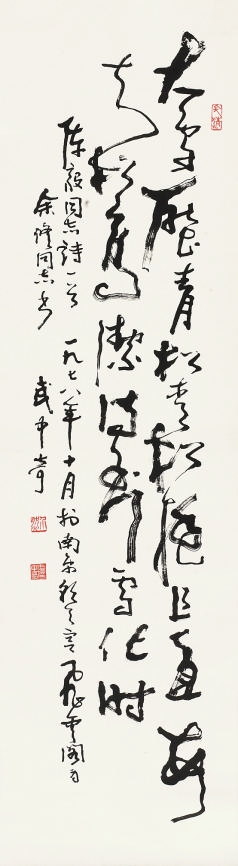 大雪压青松青松挺且直要
知松高洁待到雪化时
陈毅同志诗一首 一九七八年十月于南京
余修同志 
武中奇